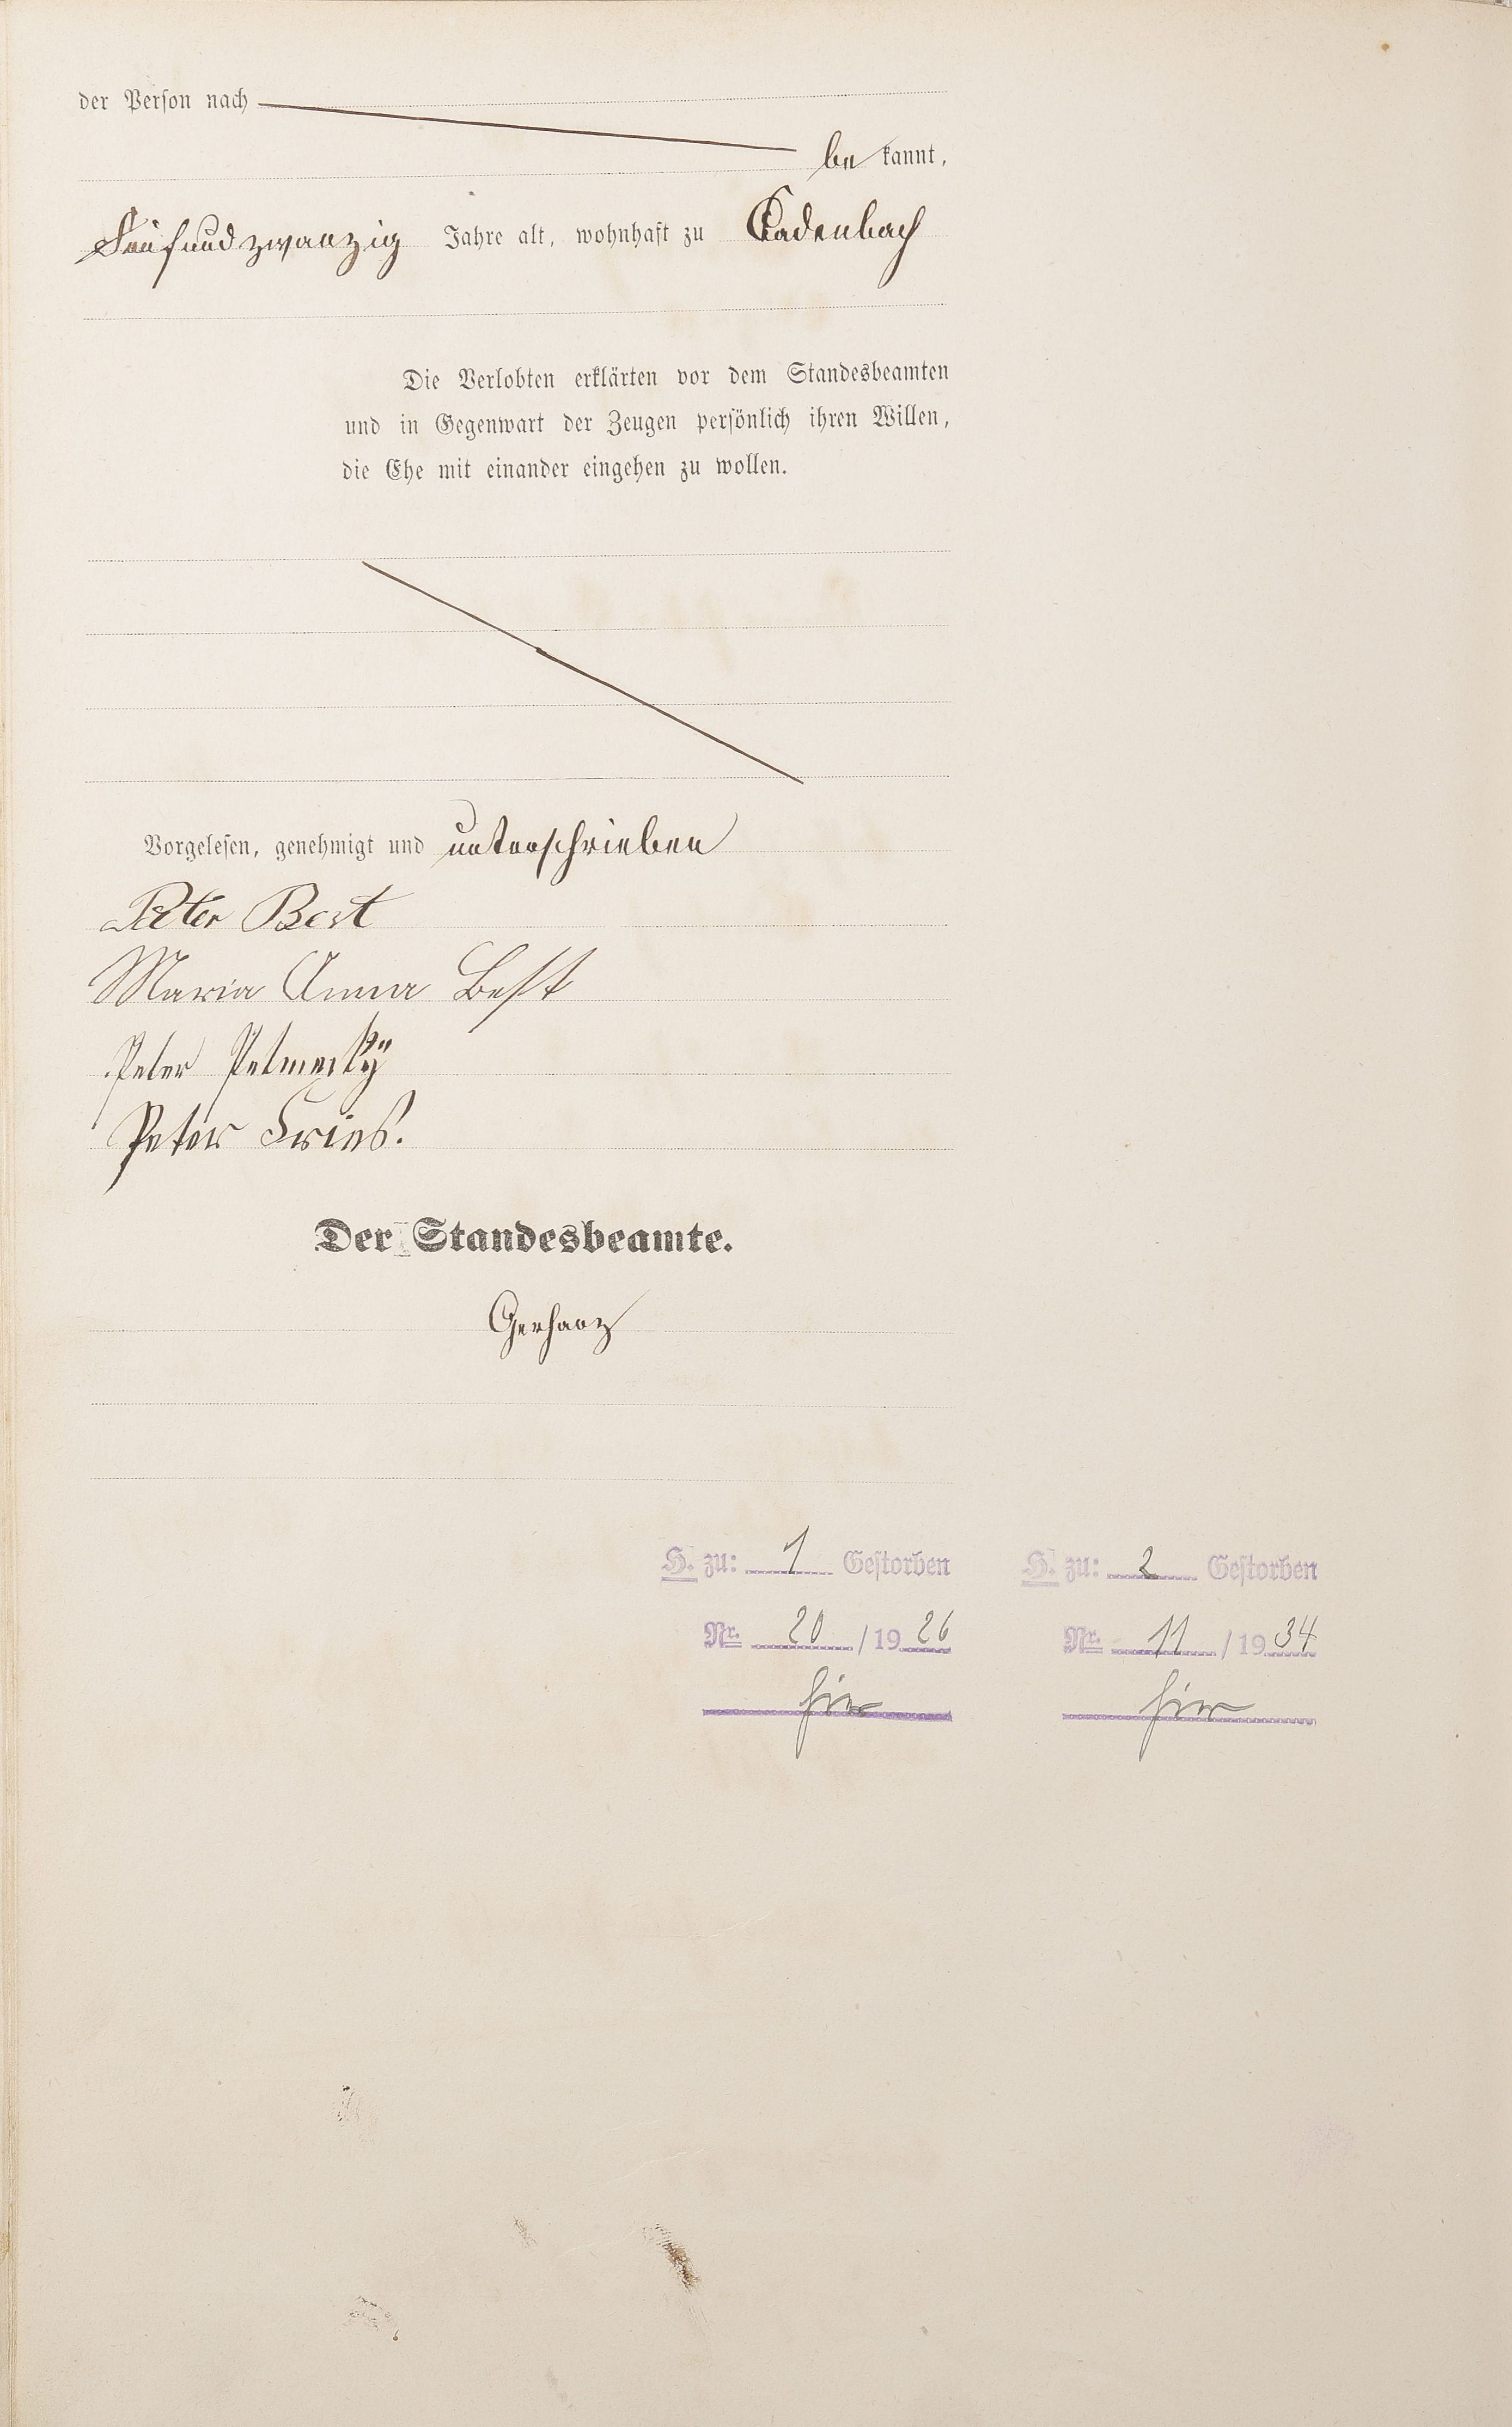 der Person nach
be kannt,
Fünfundzwanzig Jahre alt, wohnhaft zu Cadenbach
Die Verlobten erklärten vor dem Standesbeamten
und in Gegenwart der Zeugen persönlich ihren Willen,
die Ehe mit einander eingehen zu wollen.
Vorgelesen, genehmigt und unterschrieben
Peter Best
Maria Anna Best
Peter Petmecky
Peter Fries.
Der Standesbeamte.
Gerharz
H. zu: 1 Gestorben
Nr. 20 / 19 26
hier
H. zu: 2 Gestorben
Nr. 11 / 19 34
hier